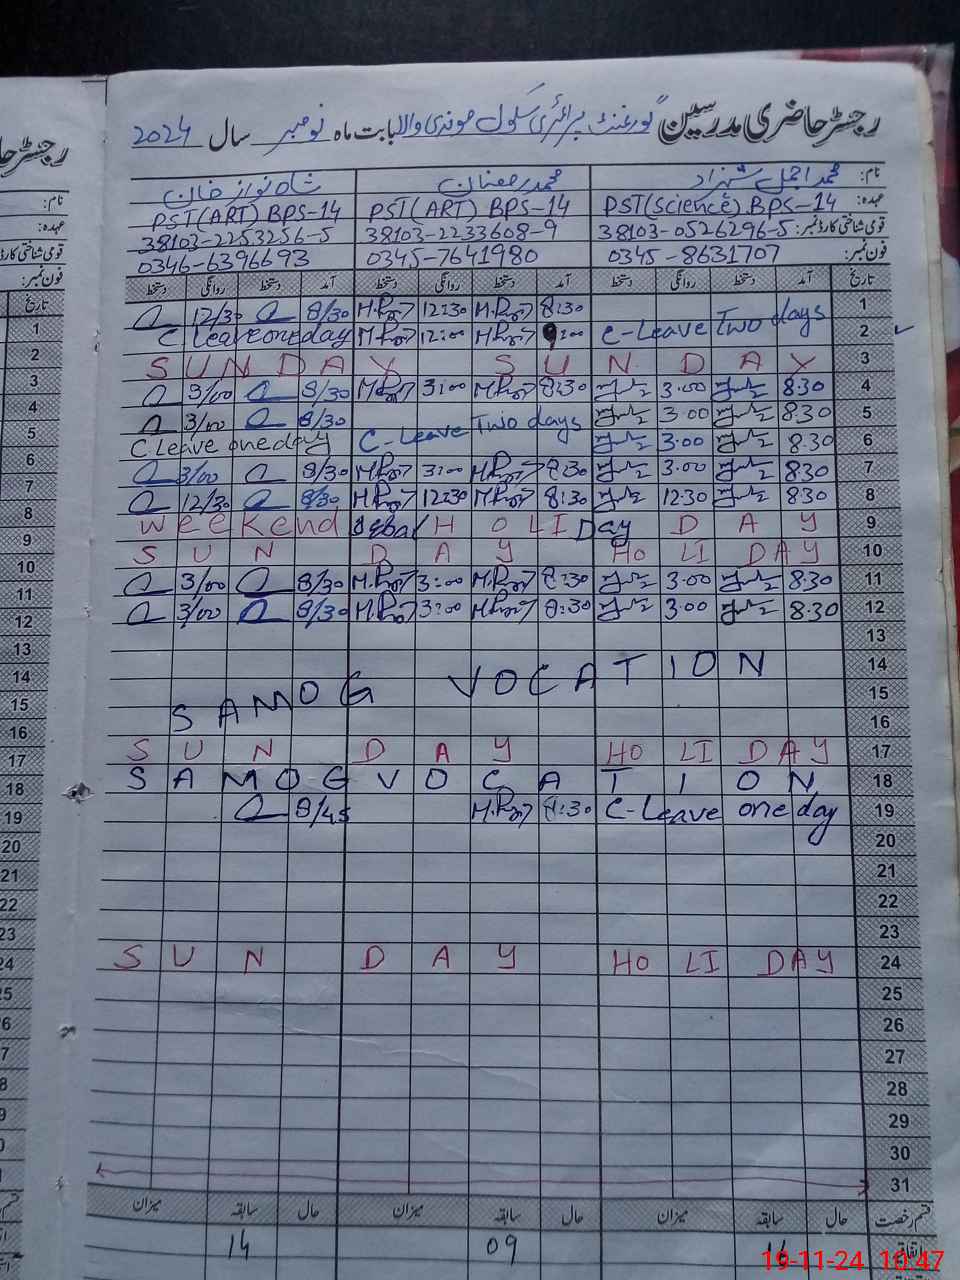 رجسٹر حاضری مدرسین گورنمنٹ پرائمری سکول موندی والا بابت ماہ نومبر سال 2024
نام: محمد اجمل شہزاد محمد رمضان شاہ نواز خان
عہدہ: PST(Science) BPS-14 PST(ART) BPS-14 PST(ART) BPS-14
قومی شناختی کارڈ نمبر: 38103-0526296-5 38103-2233608-9 38103-2253256-5
فون نمبر: 0345-8631707 0345-7641980 0346-6396693
تاریخ آمد دستخط روانگی دستخط آمد دستخط روانگی دستخط آمد دستخط روانگی دستخط
12/30 8/30 M.R 12:30 M.R 8:30 1
C Leave one day M.R 12:00 M.R 9:00 C-Leave Two days 2
S U N D A Y S U N D A Y 3
3/00 8/30 M.R 3:00 M.R 8:30 3.00 8.30 4
3/00 8/30 C-Leave Two days 3.00 8.30 5
C Leave one day 3.00 8.30 6
3/00 8/30 M.R 3:00 M.R 8:30 3.00 8.30 7
12/30 8/30 M.R 12:30 M.R 8:30 12.30 8.30 8
Weekend HOLIDay D A Y 9
S U N D A Y HO LI DAY 10
3/00 8/30 M.R 3:00 M.R 8:30 3.00 8.30 11
3/00 8/30 M.R 3:00 M.R 8:30 3.00 8.30 12
13
SAMOG VOCATION 14
15
16
S U N D A Y HO LI DAY 17
SAMOG VOCATION 18
8/45 M.R 8:30 C-Leave one day 19
20
21
22
23
S U N D A Y HO LI DAY 24
25
26
27
28
29
30
31
قسم رخصت حال سابقہ میزان حال سابقہ میزان حال سابقہ میزان
اتفاقیہ 09 14
19-11-24 10:47